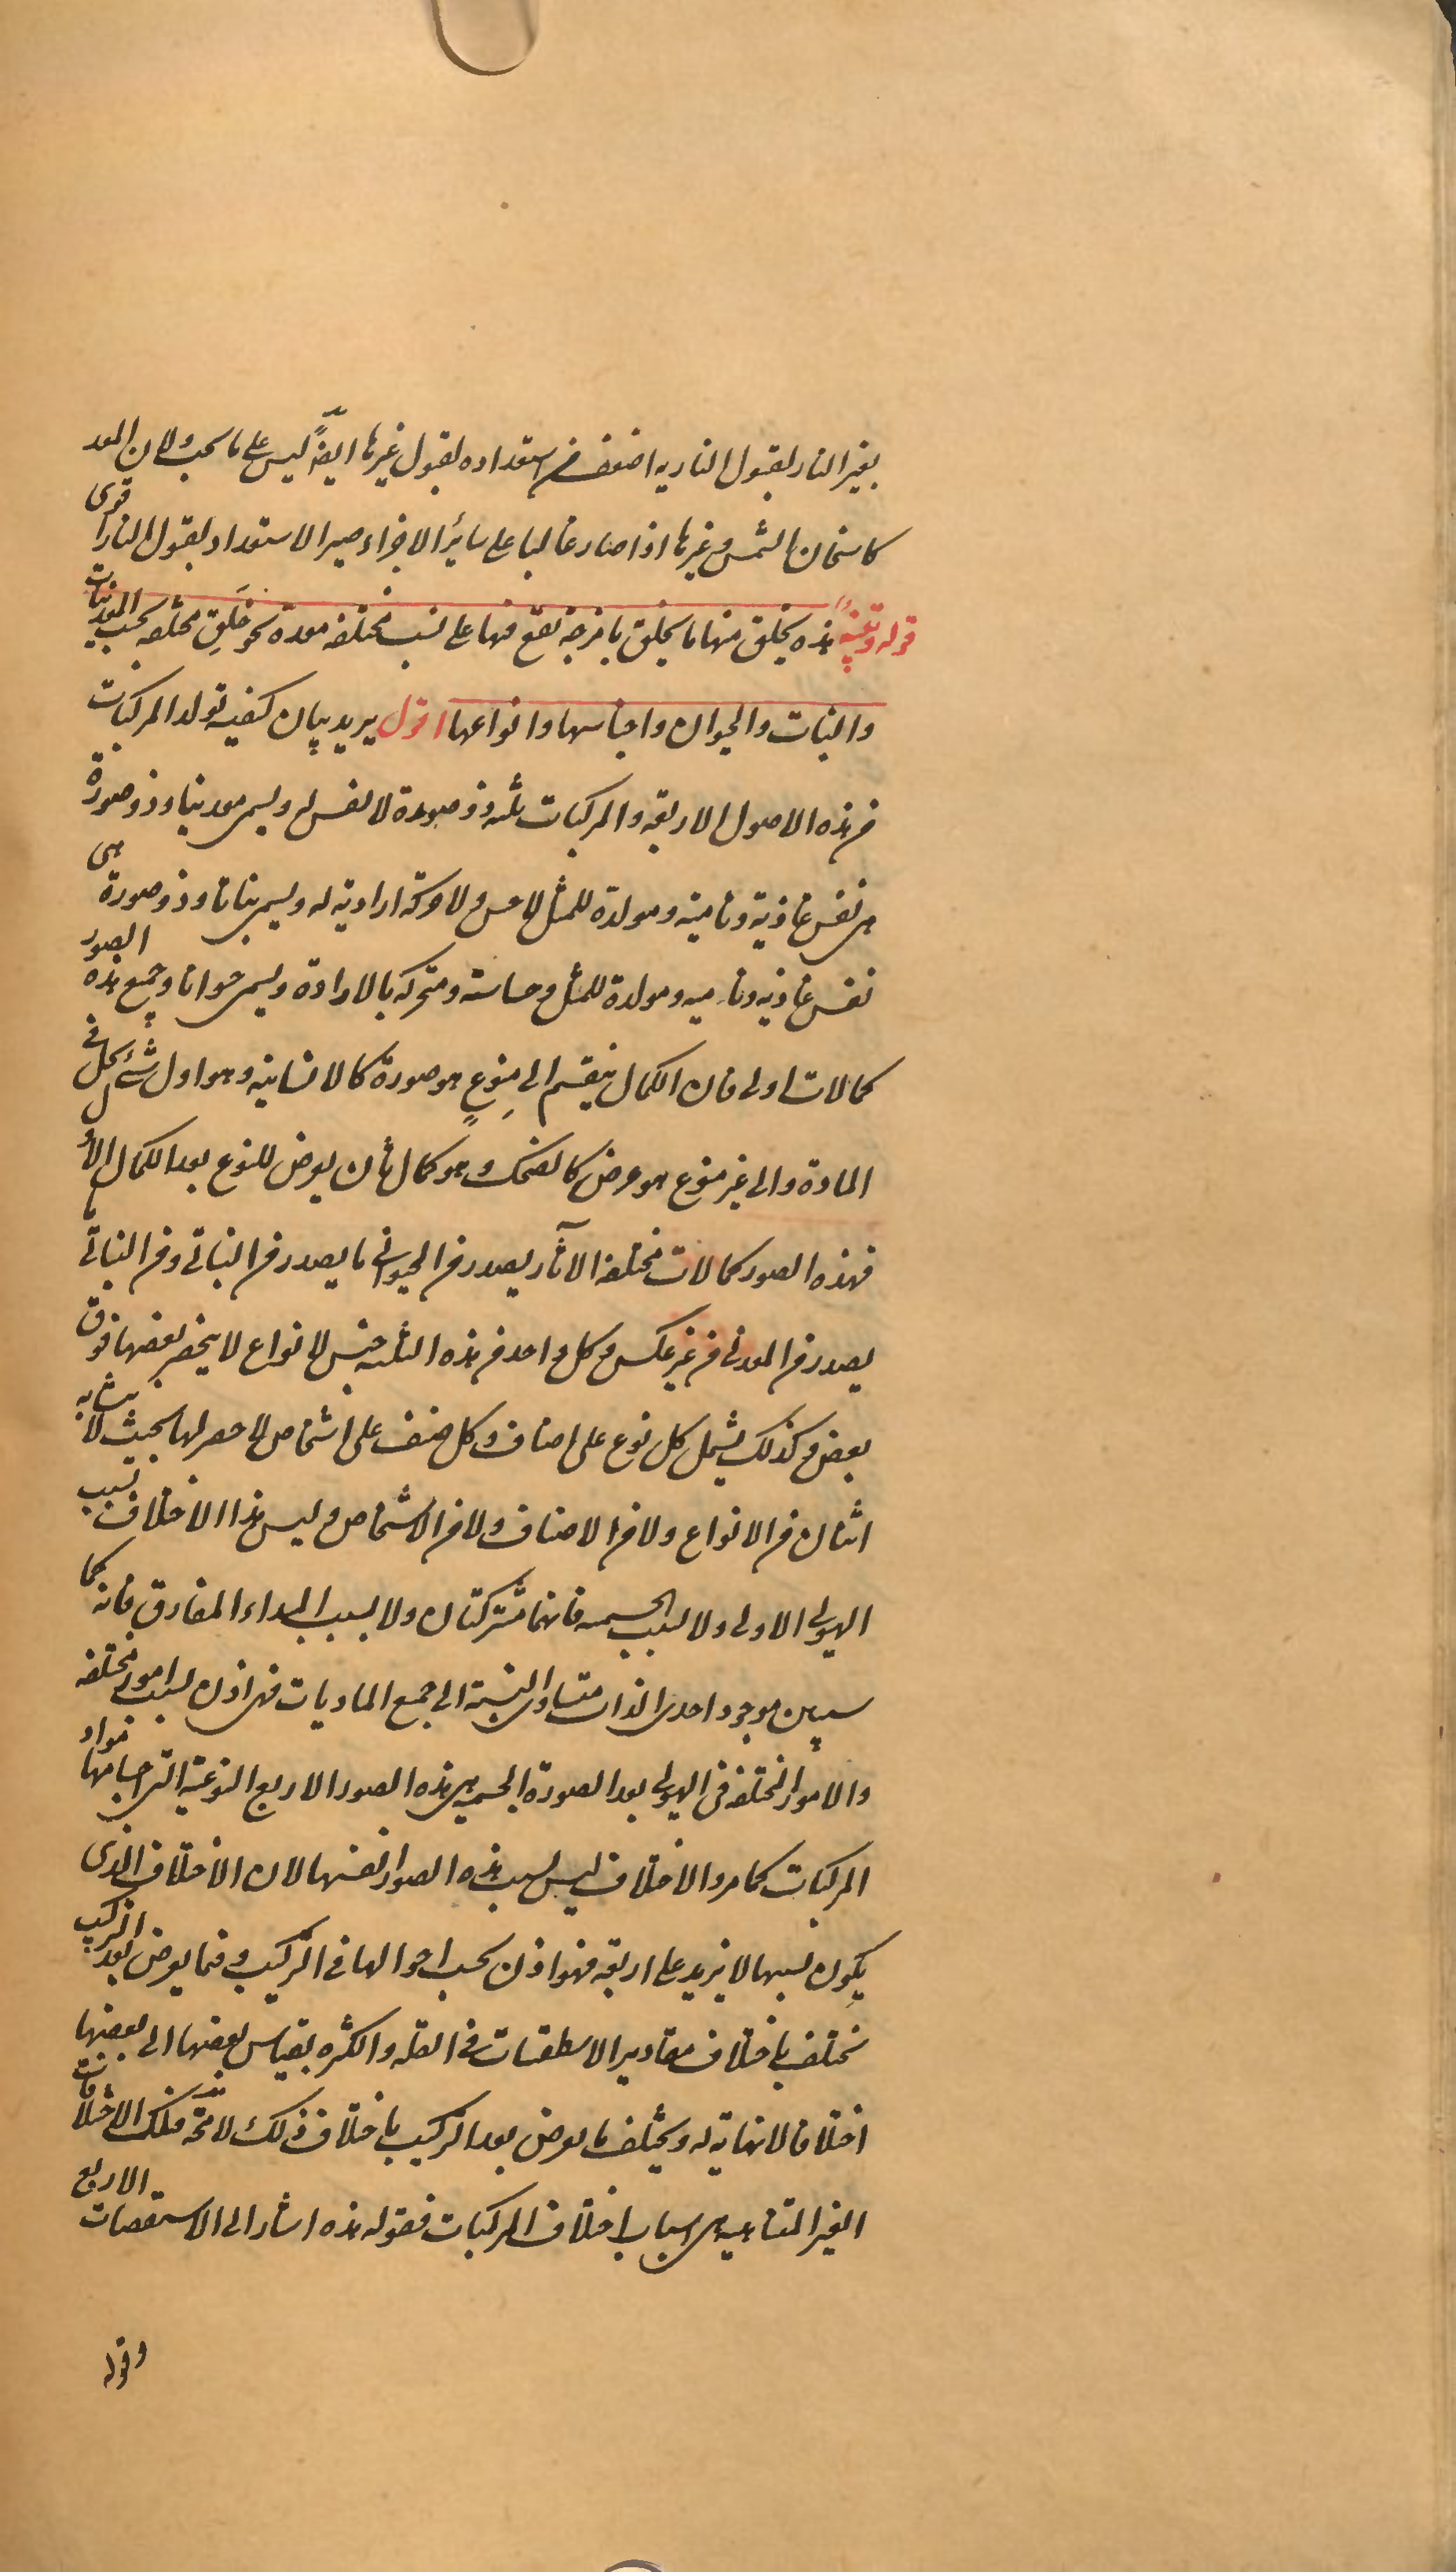 بغير النار لقبول النارية اضعف من استعداده لقبول غيرها ايضاً ليس على ما يجب ولان المعد
كاسخان الشمس وغيرها اذا صار غالبا على سائر الاجزاء صير الاستعداد لقبول النار اقوى
قوله وتنبيه هذه يخلق منها ما يخلق بامزجة تقع فيها على نسب مختلفة معدة نحو خلق مختلفه بحسب المعدنيات
والنبات والحيوان واجناسها وانواعها اقول يريد بيان كيفية تولد المركبات
من هذه الاصول الاربعة والمركبات ثلثة ذو صورة لا نفس له ويسمى معدنيا وذو صورة
هى نفس غاذية ونامية ومولدة للمثل لا حس ولا حركة ارادية له ويسمى نباتا وذو صورة هى
نفس غاذية ونامية ومولدة للمثل وحساسة ومتحركة بالارادة ويسمى حيوانا وجميع هذه الصور
كمالات اولى فان الكمال ينقسم الى منوع هو صورة كالانسانية وهو اول شئ يحل فى
المادة والى غير منوع هو عرض كالضحك وهو كمال ثان يعرض للنوع بعد الكمال الاول
فهذه الصور كمالات مختلفة الآثار يصدر من الحيوانى ما يصدر من النباتى ومن النباتى ما
يصدر من المعدنى من غير عكس وكل واحد من هذه الثلثة جنس لانواع لا ينحصر بعضها فوق
بعض وكذلك يشمل كل نوع على اصناف وكل صنف على اشخاص لا حصر لها بحيث لا يتشابه
اثنان من الانواع ولا من الاصناف ولا من الاشخاص وليس هذا الاختلاف بسبب
الهيولى الاولى ولا بسبب الجسمية فانهما مشتركتان ولا بسبب المبداء المفارق فانه كما
سيبين موجود احدى الذات متساوى النسبة الى جميع الماديات فهى اذن بسبب امور مختلفة
والامور المختلفة فى الهيولى بعد الصورة الجسمية هى هذه الصور الاربع النوعية التى اجسامها مواد
المركبات كما مر والاختلاف ليس بسبب هذه الصور انفسها لان الاختلاف الذى
يكون بسببها لا يزيد على اربعة فهو اذن بحسب احوالها فى التركيب وفيما يعرض بعد التركيب
تختلف باختلاف مقادير الاسطقسات فى القلة والكثرة بقياس بعضها الى بعضها
اختلافا لا نهاية له ويختلف ما يعرض بعد التركيب باختلاف ذلك لا محّة فتلك الاختلافات
الغير المتناهية هى اسباب اختلاف المركبات فقوله هذه اشار الى الاستقصات الاربع
وقوله